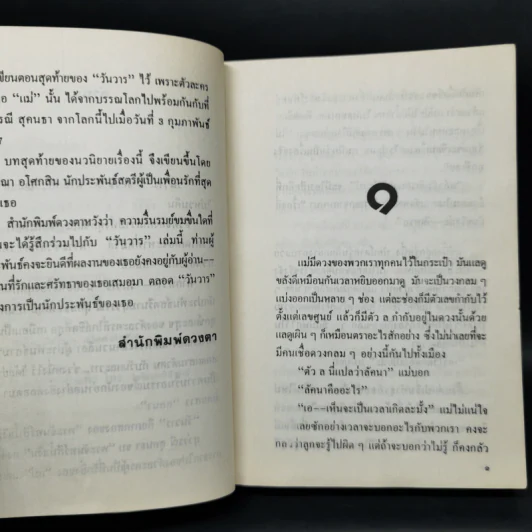 ขียนตอนสุดท้ายของ “วันวาร” ไว้ เพราะตัวละคร
อ “แม่” นั้น ได้จากบรรณโลกไปพร้อมกันกับที่
รณี สุคนธา จากโลกนี้ไปเมื่อวันที่ 3 กุมภาพันธ์
7
บทสุดท้ายของนวนิยายเรื่องนี้ จึงเขียนขึ้นโดย
ณา อโศกสิน นักประพันธ์สตรีผู้เป็นเพื่อนรักที่สุด
เธอ
สำนักพิมพ์ดวงตาหวังว่า ความรื่นรมย์ขมขื่นใดที่
จะได้รู้สึกร่วมไปกับ “วันวาร” เล่มนี้ ท่านผู้
พันธ์คงจะยินดีที่ผลงานของเธอยังคงอยู่กับผู้อ่าน--
นที่รักและศรัทธาของเธอเสมอมา ตลอด “วันวาร”
งการเป็นนักประพันธ์ของเธอ
สำนักพิมพ์ดวงตา
๑
แม่มีดวงของพวกเราทุกคนไว้ในกระเป๋า มันแลดู
ขลังดีเหมือนกันเวลาหยิบออกมาดู มันจะเป็นวงกลม ๆ
แบ่งออกเป็นหลาย ๆ ช่อง แต่ละช่องก็มีตัวเลขกำกับไว้
ตั้งแต่เลขศูนย์ แล้วก็มีตัว ล กำกับอยู่ในดวงนั้นด้วย
แลดูเผิน ๆ ก็เหมือนตราอะไรสักอย่าง ซึ่งไม่น่าเลยที่จะ
มีคนเชื่อดวงกลม ๆ อย่างนี้กันไปทั้งเมือง
“ตัว ล นี่แปลว่าลัคนา” แม่บอก
“ลัคนาคืออะไร”
“เอ--เห็นจะเป็นเวลาเกิดละมั้ง” แม่ไม่แน่ใจ
เลยซักอย่างเวลาจะบอกอะไรกับพวกเรา คงจะ
กลัวว่าลูกจะรู้ไปผิด ๆ แต่ถ้าจะบอกว่าไม่รู้ ก็คงกลัว
๑